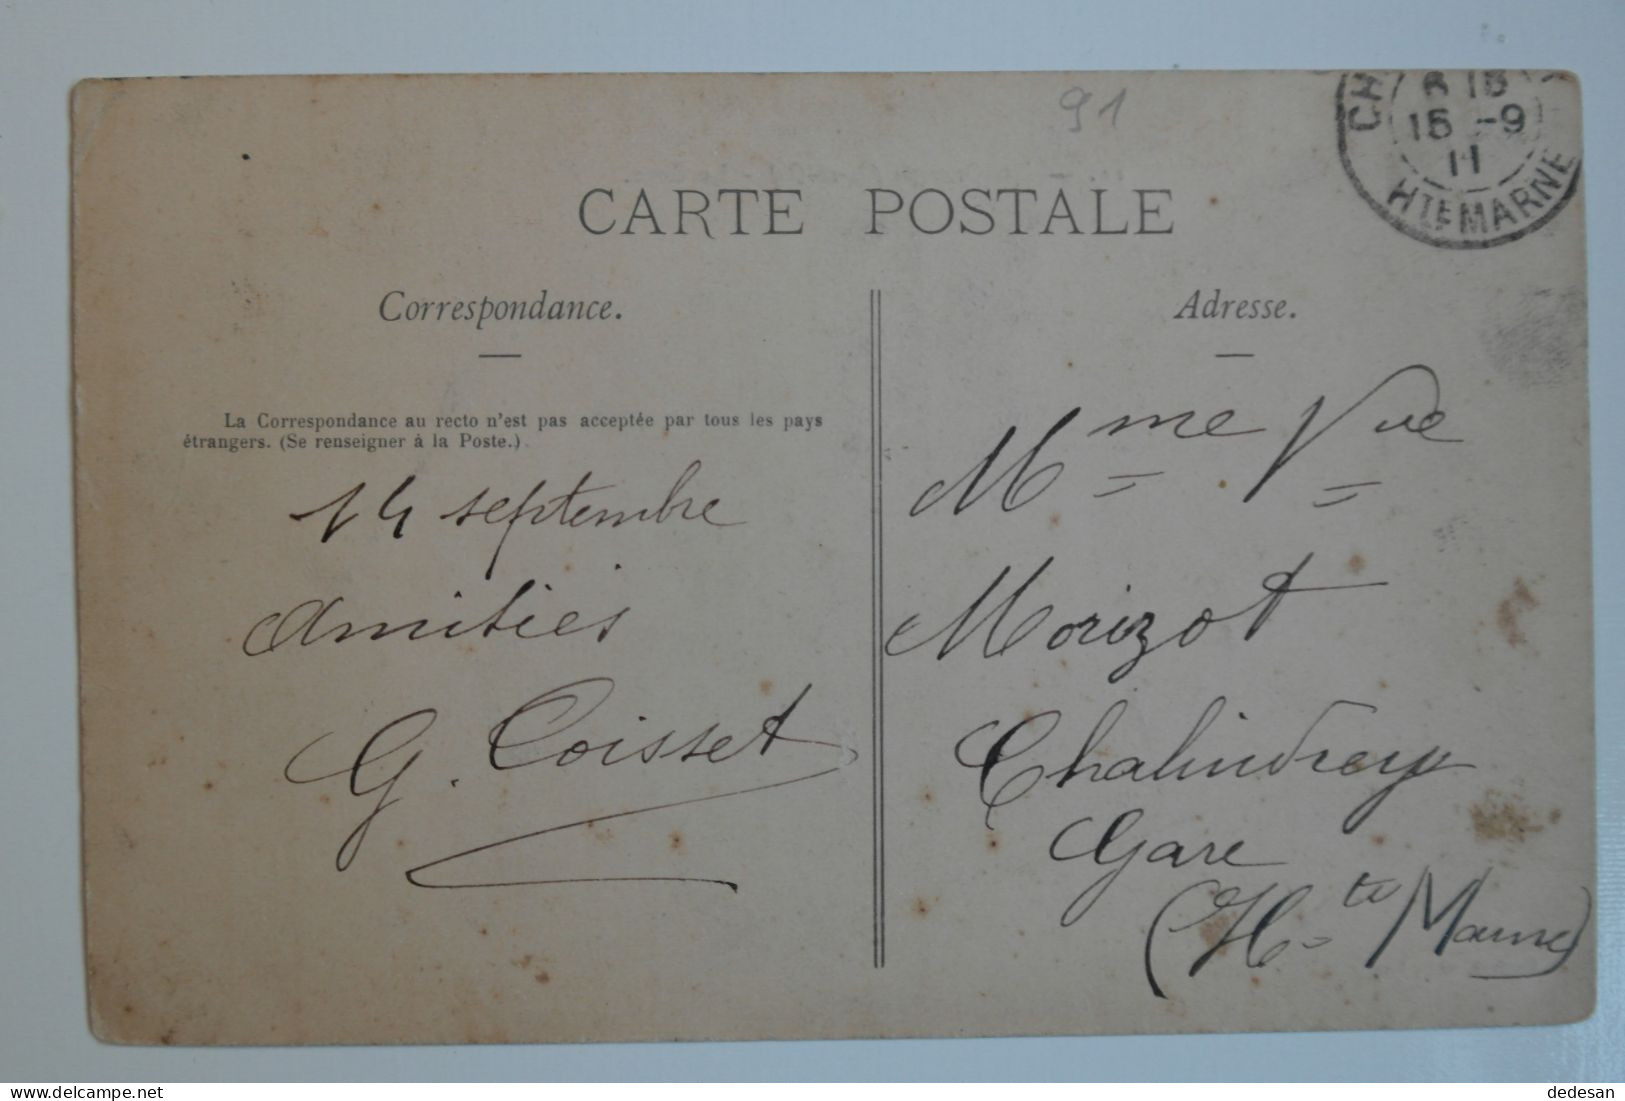 91
CH
6 15
15 -9
11
HTE MARNE
CARTE POSTALE
Correspondance.
La Correspondance au recto n'est pas acceptée par tous les pays
étrangers. (Se renseigner à la Poste.)
14 septembre
Amitiés
G. Coisset
Adresse.
Mme Vve
Morizot
Chalindrey
Gare
(Hte Marne)
delcampe.net
dedesan